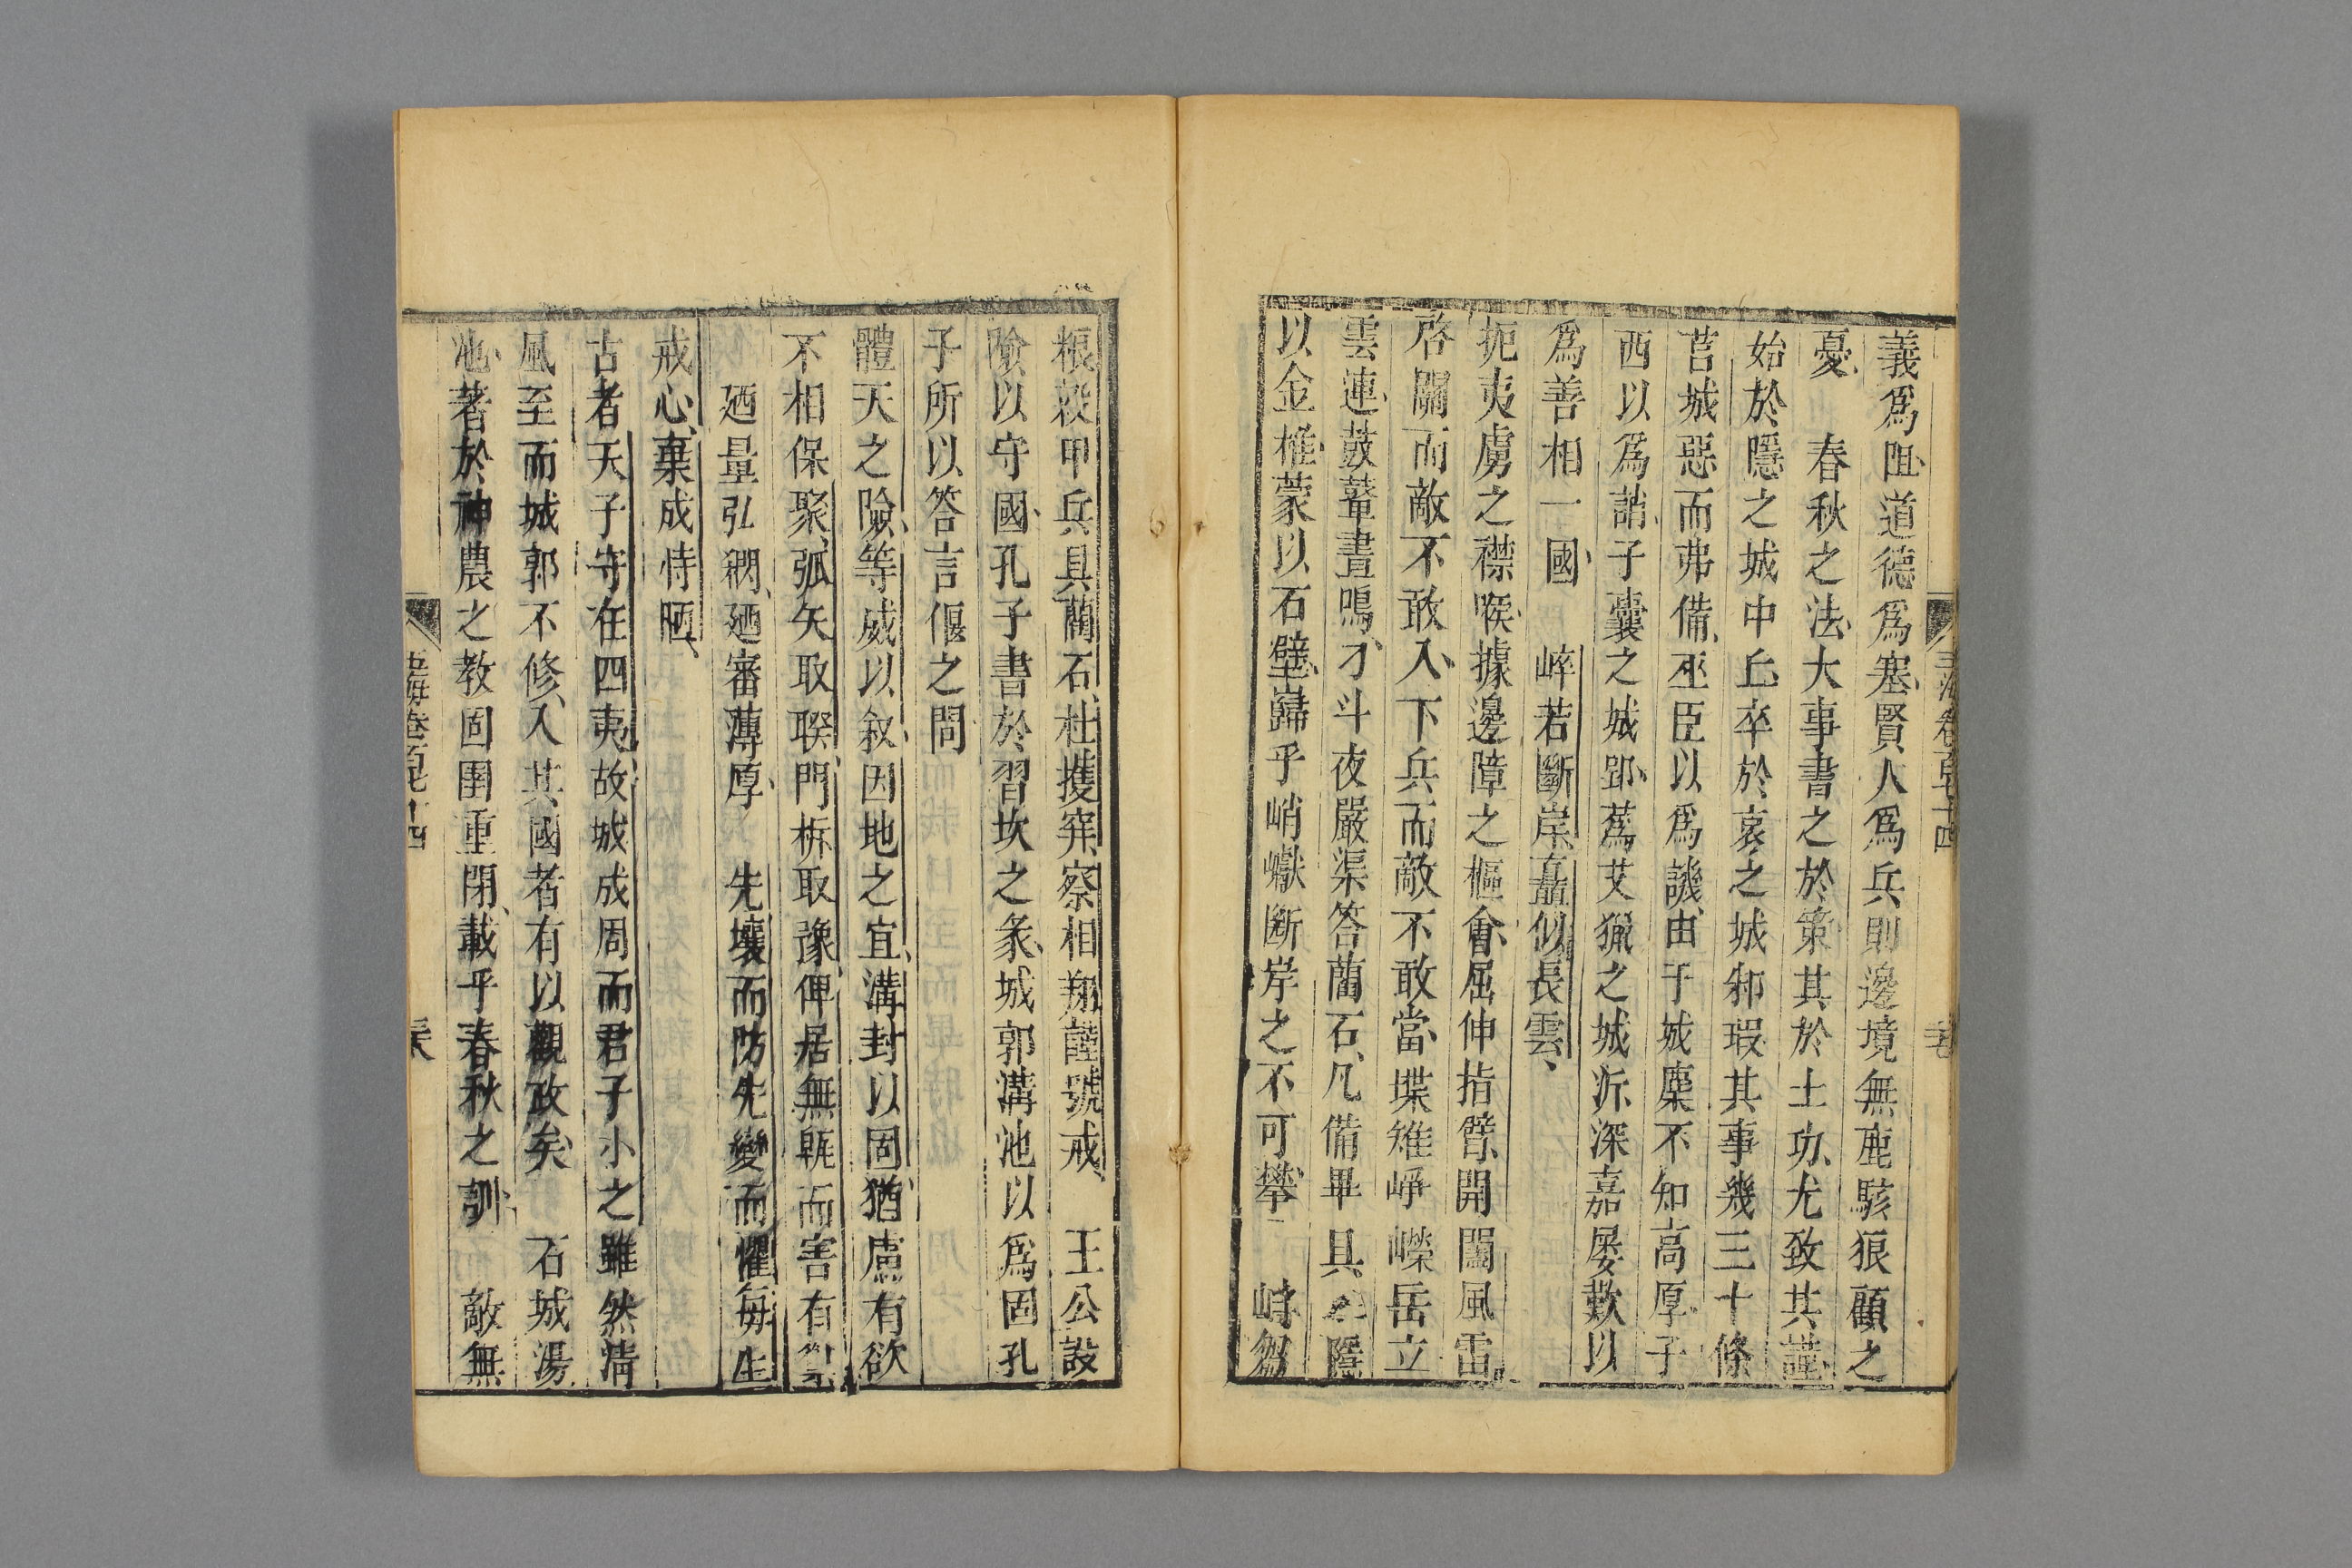 義爲阻道德爲塞賢人爲兵則邊境無鹿駭狼顧之
憂　春秋之法大事書之於策其於土功尤致其謹
始於隱之城中丘卒於哀之城邾瑕其事幾三十條
莒城惡而弗備巫臣以爲譏由于城麇不知高厚子
西以爲誚子囊之城郢蔿艾獵之城沂深嘉屡歎以
爲善相一國　崪若斷岸矗似長雲
扼夷虜之襟喉據邊障之樞會屈伸指臂開闔風雷
啓關而敵不敢入下兵而敵不敢當堞雉崢嶸岳立
雲連鼓鼙晝鳴刁斗夜嚴渠答藺石凡備畢具　隱
以金椎蒙以石壁巋乎峭巘断岸之不可攀　峙芻
玉海卷百七十四
粮穀甲兵具藺石杜擭穽察相翔謹號戒　王公設
險以守國孔子書於習坎之彖城郭溝池以爲固孔
子所以答言偃之問
體天之險等威以叙因地之宜溝封以固猶慮有欲
不相保聚弧矢取睽門柝取豫俾居無毻而害有禦
廼量弘棚廼審薄厚　先壞而防先變而懼每生
戒心棄成恃陋
古者天子守在四夷故城成周而君子小之雖然清
風至而城郭不修入其國者有以觀政矣　石城湯
池著於神農之教固圉重閉載乎春秋之訓　敵無
玉海卷百七十四